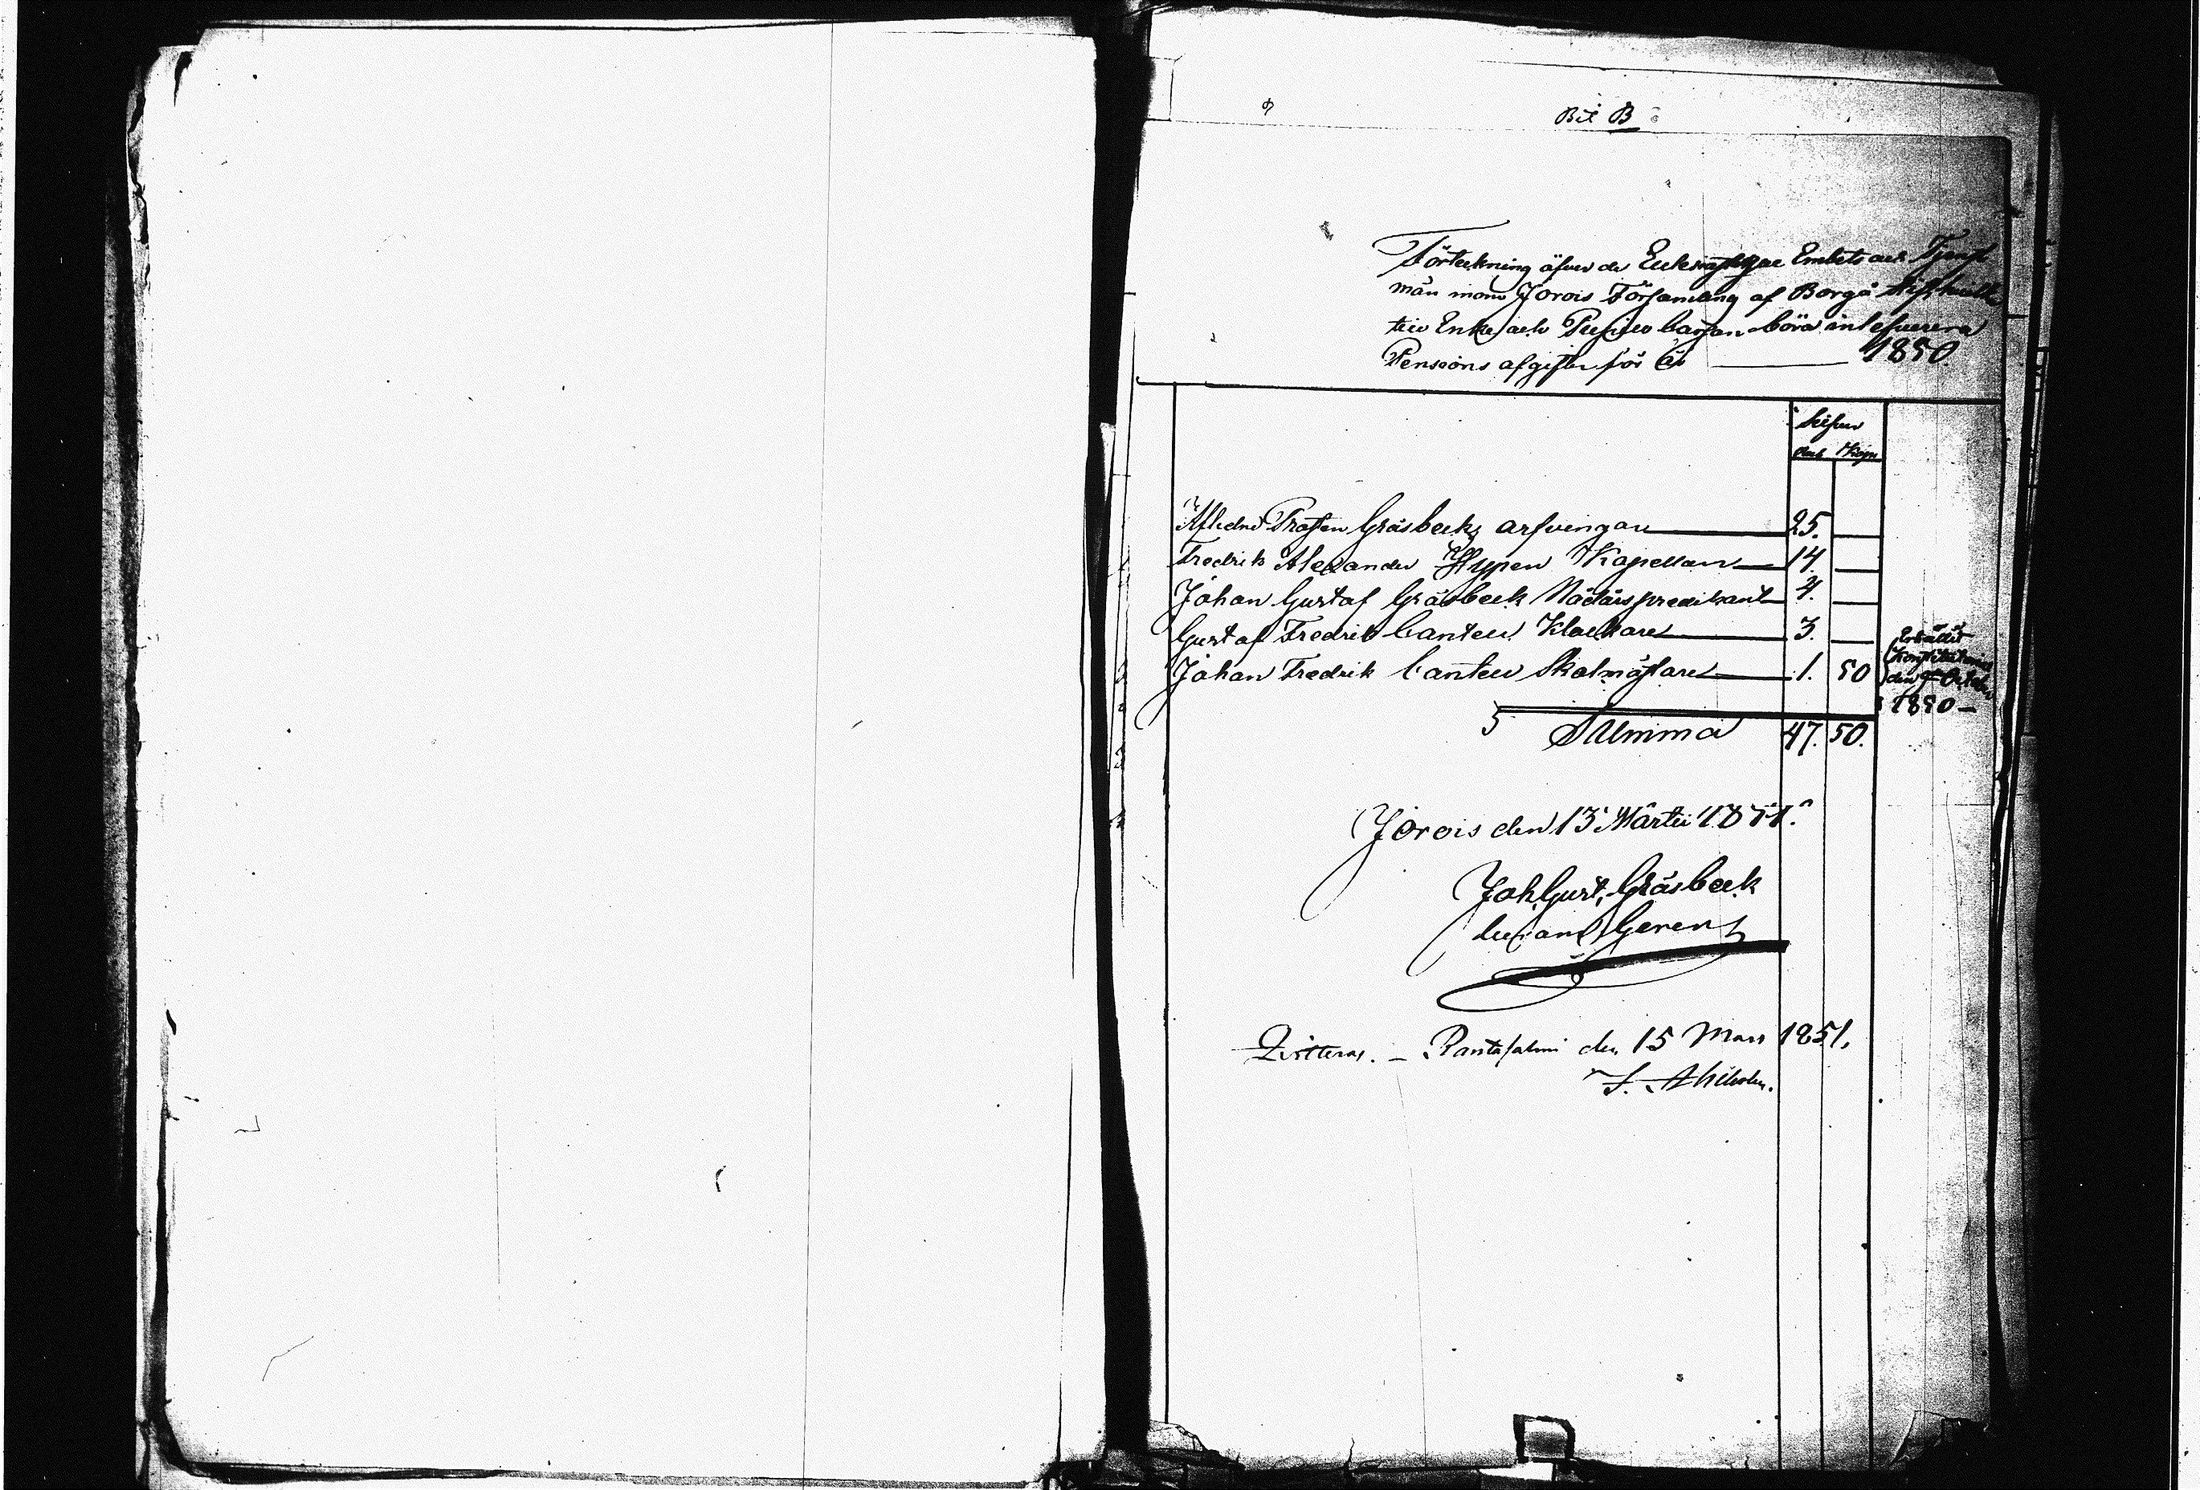 Bil B
Förteckning öfver de Ecklesiastique Embets och Tjenst
män inom Jorois Församling af Borgå Stift hvilka
till Enke och Pupill Cassan böra inlefverera
Pensions afgifter för År 1850.
Silfver
Rub. Kop.
Aflidne Prosten Gråsbecks arfvingar 25. —
Fredrik Alexander Kapellan 14. —
Johan Gustaf Gråsbeck Nådårspredikant 4. —
Gustaf Fredrik Canteli Klockare 3. —
Johan Fredrik Canteli Skolmästare 1. 50
Erhållit
Konstitutorial
den October
1850 —
Summa 47. 50.
Jorois den 13 Martii 1851.
Joh. Gust. Gråsbeck
Gerens
Qvitteras. — Rantasalmi den 15 Mars 1851.